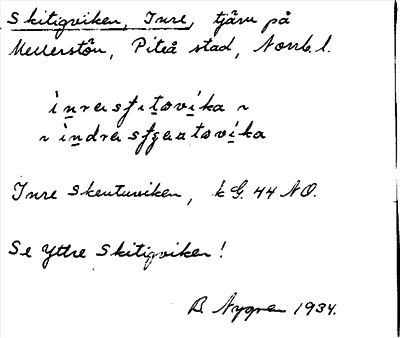 Skitigviken, Inre, tjärn på
Mellerstön, Piteå stad, Norrb. l.
inrasfitovika ~
~ indrasfgaatovika
Inre Skeutuviken, kG. 44 NO.
Se Yttre Skitigviken!
B Nygren 1934.